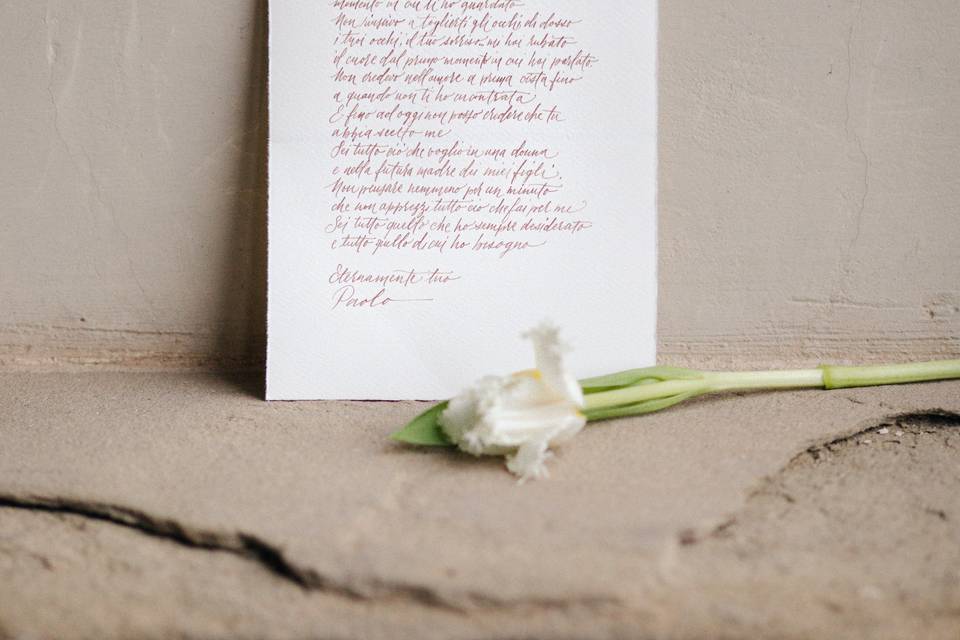 momento in cui ti ho guardato
Non riuscivo a toglierti gli occhi di dosso
i tuoi occhi, il tuo sorriso, mi hai rubato
il cuore dal primo momento in cui hai parlato.
Non credevo nell'amore a prima vista fino
a quando non ti ho incontrata
E fino ad oggi non posso credere che tu
abbia scelto me
Sei tutto ciò che voglio in una donna
e nella futura madre dei miei figli.
Non pensare nemmeno per un minuto
che non apprezzi tutto ciò che fai per me
Sei tutto quello che ho sempre desiderato
e tutto quello di cui ho bisogno
Eternamente tuo
Paolo